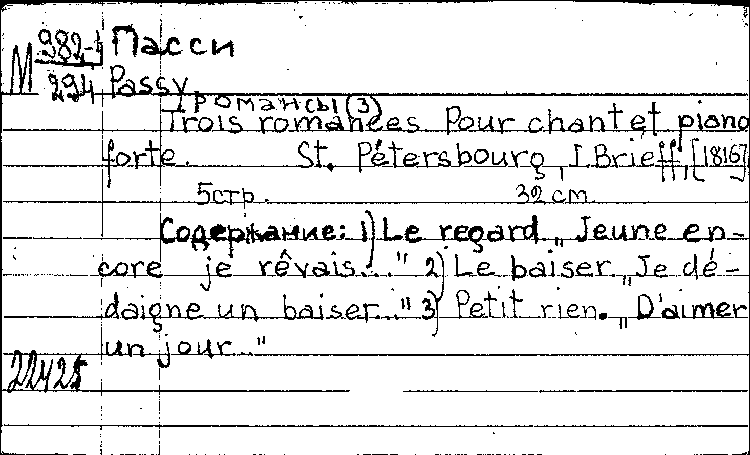 М 982-1 Пасси
294 Passy.
[Романсы (3)
Trois romances. Pour chant et piano
forte. St. Pétersbourg, I. Brieff, [1816]
5 стр. 32 см.
Содержание: 1) Le regard „Jeune en-
core je rêvais..." 2) Le baiser „Je dé-
daigne un baiser..." 3) Petit rien. „D'aimer
un jour..."